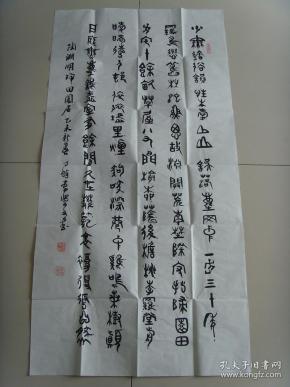 少無適俗韻性本愛丘山誤落塵網中一去三十年
羈鳥戀舊林池魚思故淵開荒南野際守拙歸園田
方宅十餘畝草屋八九間榆柳蔭後檐桃李羅堂前
曖曖遠人村依依墟里煙狗吠深巷中雞鳴桑樹顛
戶庭無塵雜虛室有餘閒久在樊籠裏復得返自然
陶淵明歸田園居 乙未秋
孔夫子旧书网